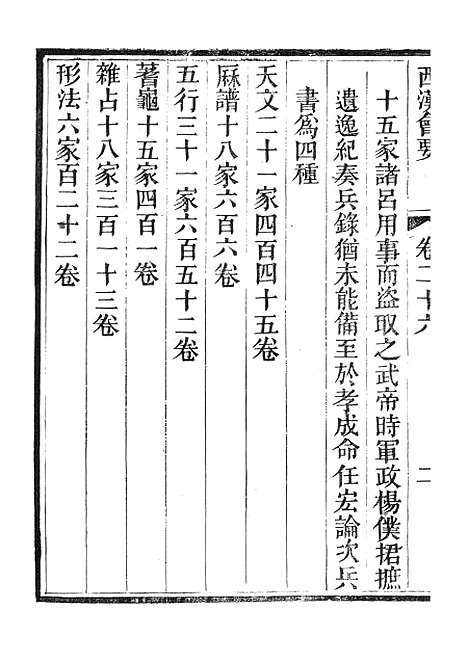 西漢會要 卷二十六 二
十五家諸呂用事而盜取之武帝時軍政楊僕捃摭
遺逸紀奏兵錄猶未能備至於孝成命任宏論次兵
書爲四種
天文二十一家四百四十五卷
厤譜十八家六百六卷
五行三十一家六百五十二卷
蓍龜十五家四百一卷
雜占十八家三百一十三卷
形法六家百二十二卷